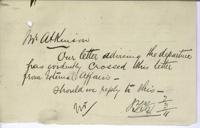 Mr Atkinson
Our letter advising the departure
has evidently crossed this letter
from External Affairs —
should we reply to this —